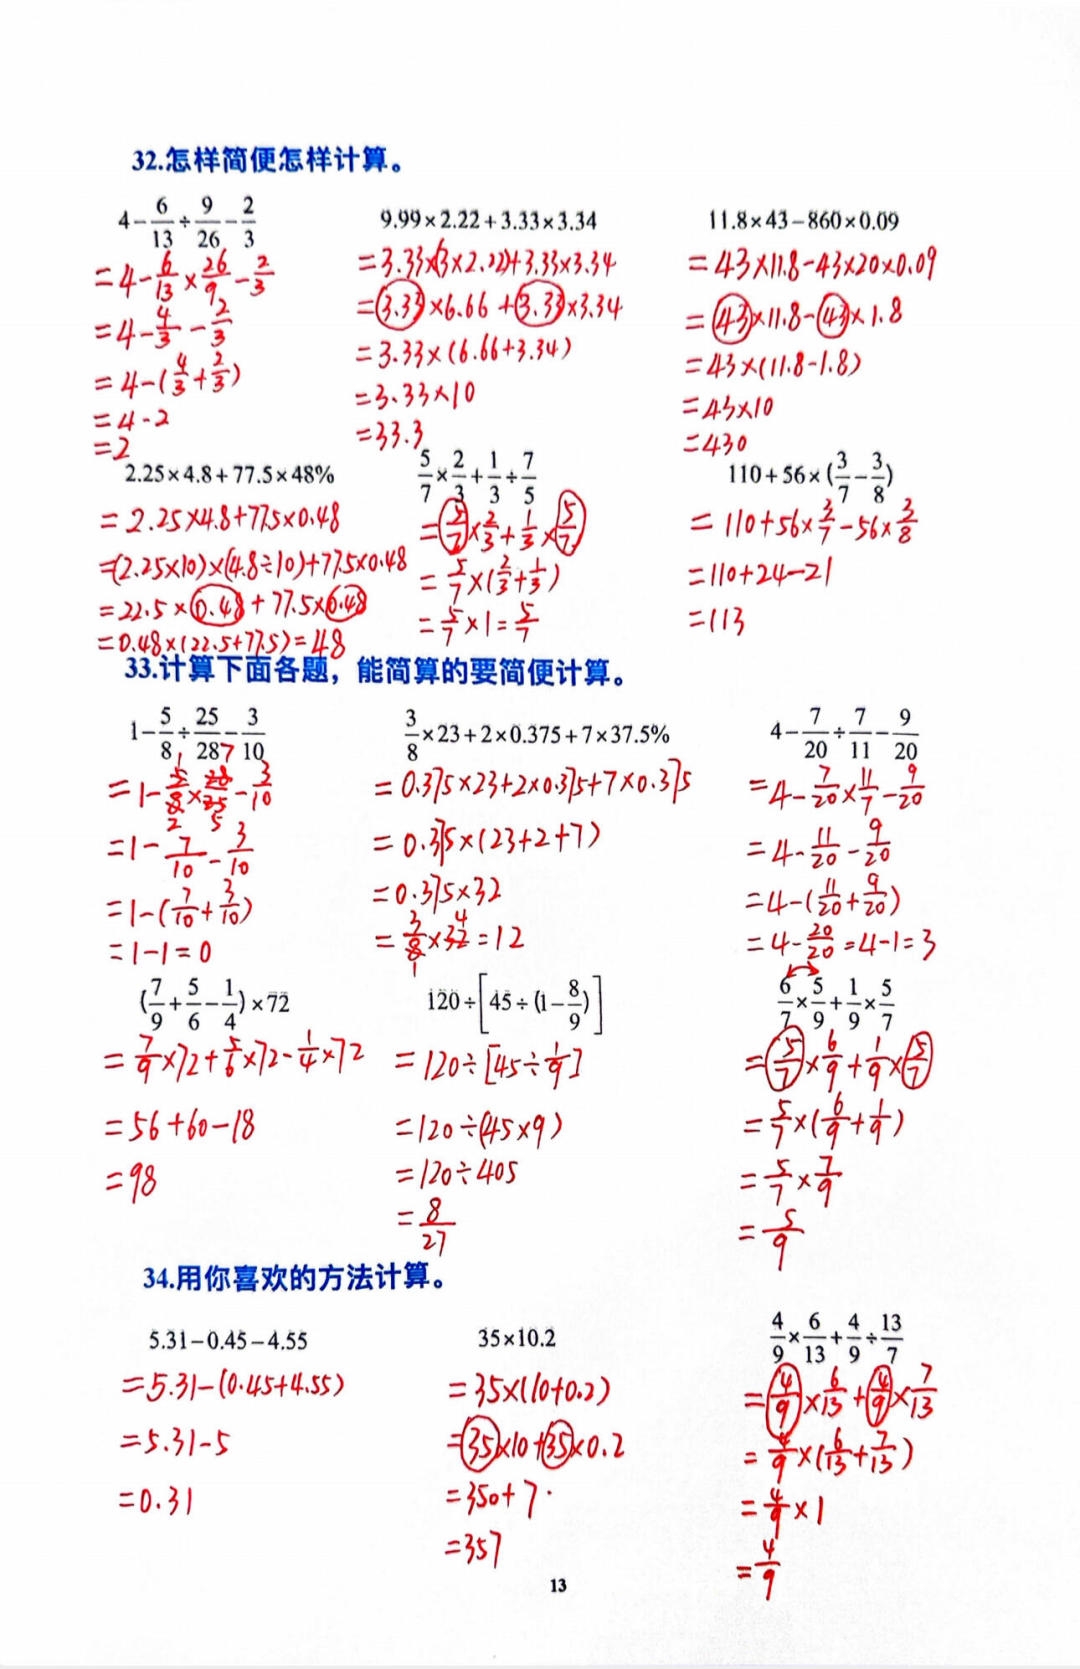 32.怎样简便怎样计算。
4-6/13÷9/26-2/3
=4-6/13×26/9-2/3
=4-4/3-2/3
=4-(4/3+2/3)
=4-2
=2
9.99×2.22+3.33×3.34
=3.33×(3×2.22)+3.33×3.34
=3.33×6.66+3.33×3.34
=3.33×(6.66+3.34)
=3.33×10
=33.3
11.8×43-860×0.09
=43×11.8-43×20×0.09
=43×11.8-43×1.8
=43×(11.8-1.8)
=43×10
=430
2.25×4.8+77.5×48%
=2.25×4.8+77.5×0.48
=(2.25×10)×(4.8÷10)+77.5×0.48
=22.5×0.48+77.5×0.48
=0.48×(22.5+77.5)=48
5/7×2/3+1/3÷7/5
=5/7×2/3+1/3×5/7
=5/7×(2/3+1/3)
=5/7×1=5/7
110+56×(3/7-3/8)
=110+56×3/7-56×3/8
=110+24-21
=113
33.计算下面各题，能简算的要简便计算。
1-5/8÷25/28-3/10
=1-5/8×28/25-3/10
=1-7/10-3/10
=1-(7/10+3/10)
=1-1=0
3/8×23+2×0.375+7×37.5%
=0.375×23+2×0.375+7×0.375
=0.375×(23+2+7)
=0.375×32
=3/8×32=12
4-7/20÷7/11-9/20
=4-7/20×11/7-9/20
=4-11/20-9/20
=4-(11/20+9/20)
=4-20/20=4-1=3
(7/9+5/6-1/4)×72
=7/9×72+5/6×72-1/4×72
=56+60-18
=98
120÷[45÷(1-8/9)]
=120÷[45÷1/9]
=120÷(45×9)
=120÷405
=8/27
6/7×5/9+1/9×5/7
=5/7×6/9+1/9×5/7
=5/7×(6/9+1/9)
=5/7×7/9
=5/9
34.用你喜欢的方法计算。
5.31-0.45-4.55
=5.31-(0.45+4.55)
=5.31-5
=0.31
35×10.2
=35×(10+0.2)
=35×10+35×0.2
=350+7
=357
4/9×6/13+4/9÷13/7
=4/9×6/13+4/9×7/13
=4/9×(6/13+7/13)
=4/9×1
=4/9
13